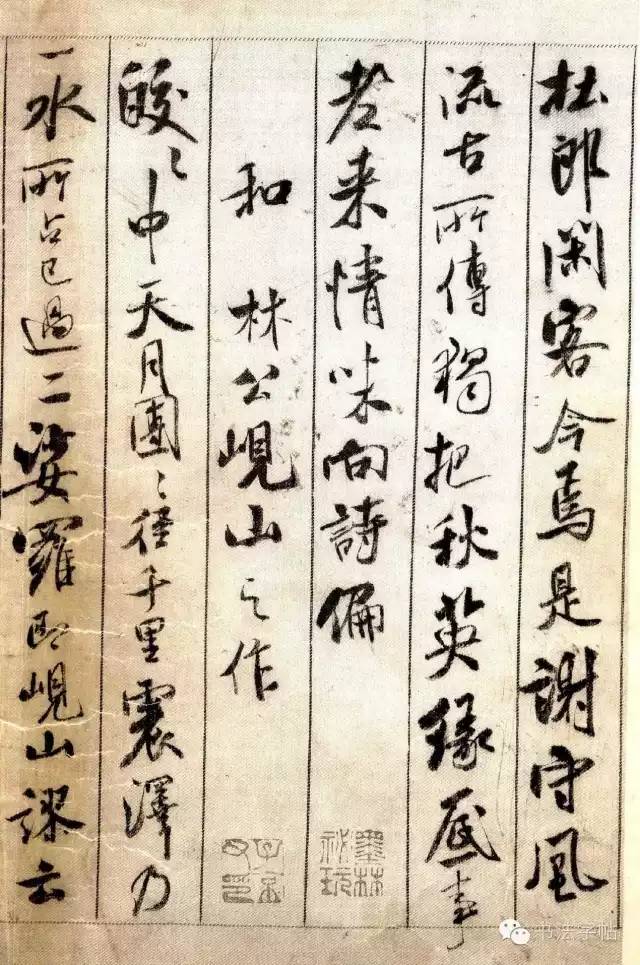 杜郎閑客今焉是謝守風
流古所傳獨把秋英緣底事
老来情味向詩偏
和 林公峴山之作
皎々中天月團々徑千里震澤乃
一水所占已過二娑羅即峴山謬云
墨林祕玩
书法字帖